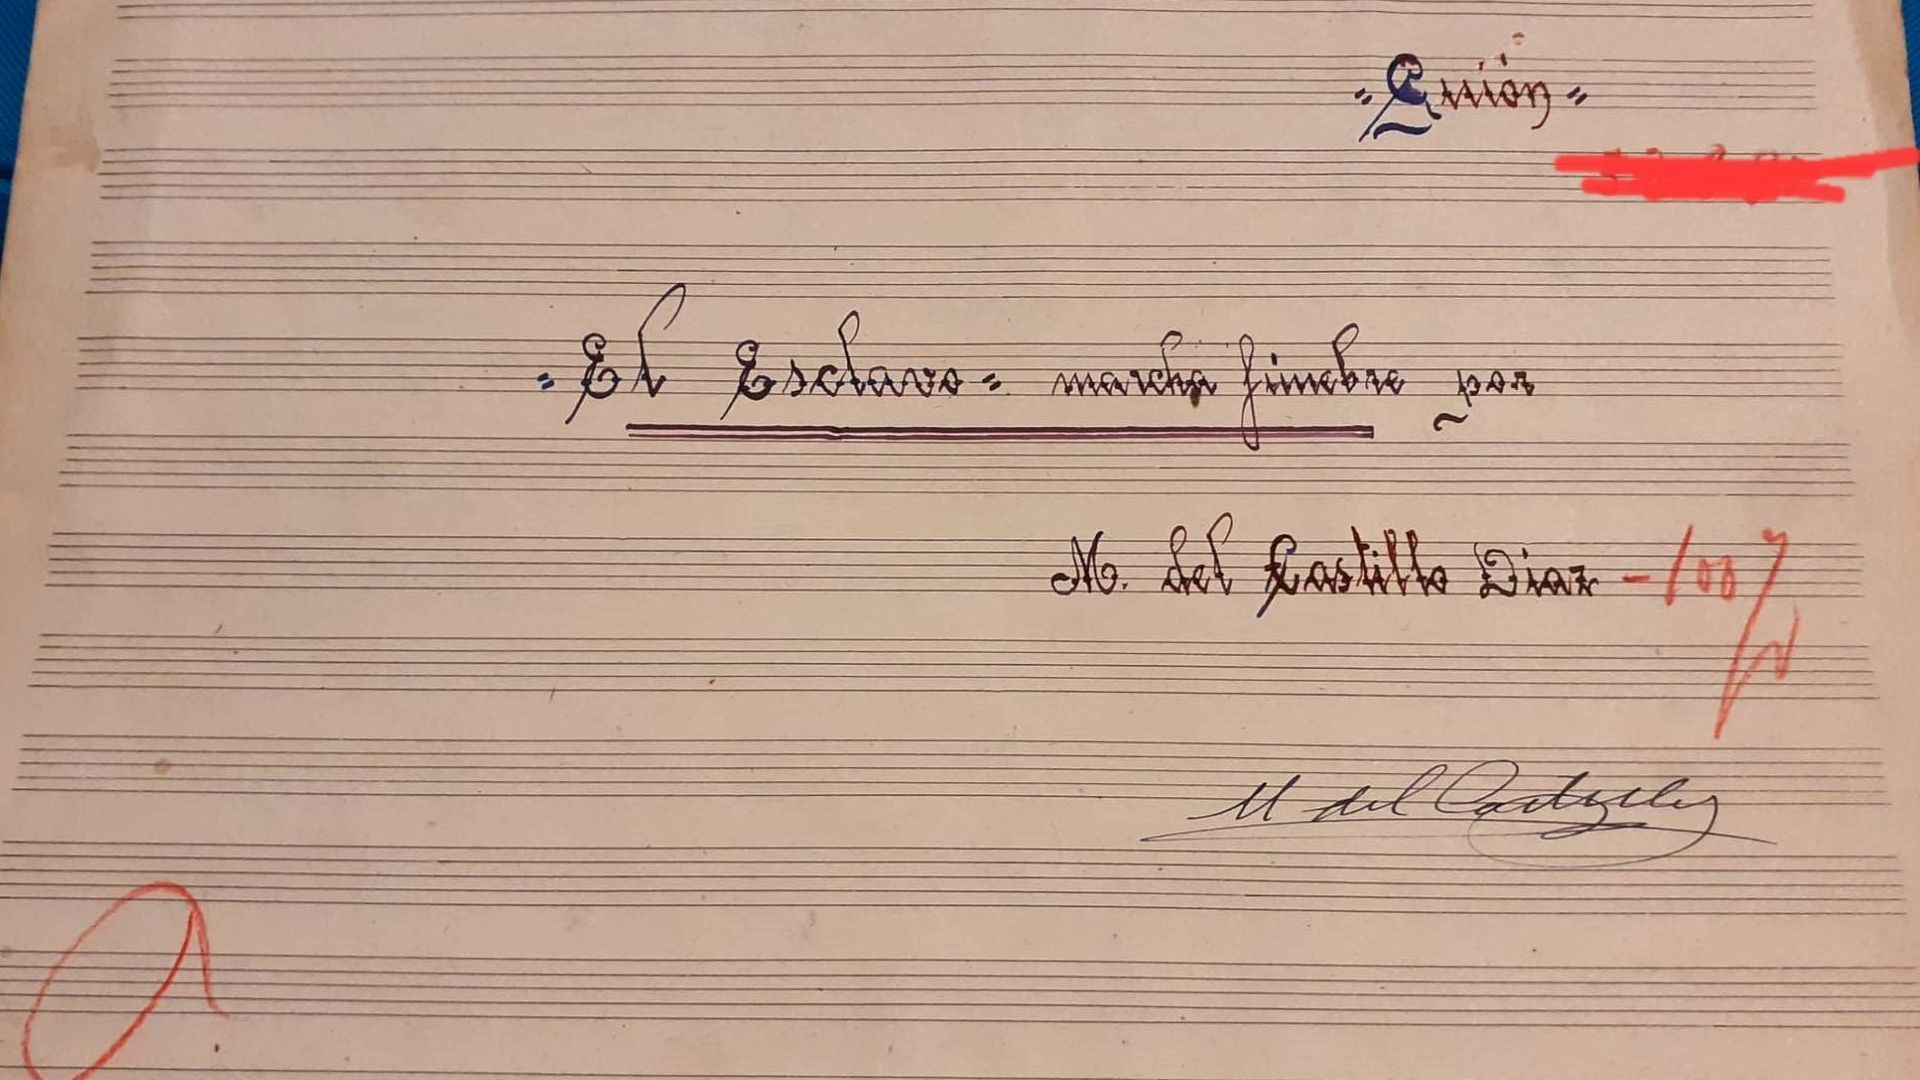 "Guión"
"El Esclavo" marcha fúnebre por
M. del Castillo Diaz - 100
M del Castillo